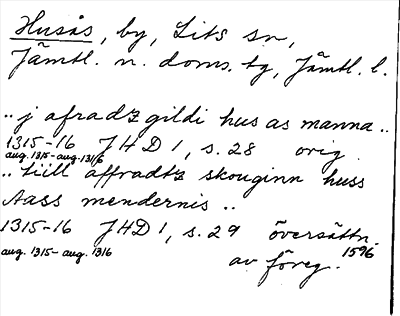 Husås, by, Lits sn,
Jämtl. n. doms. tg, Jämtl. l.
.. j afradz gildi hus as manna ..
1315-16 JHD 1, s. 28 orig.
aug. 1315-aug. 1316
.. tiill affradtz skouginn huss
Aass mendernis ..
1315-16 JHD 1, s. 29 översättn.
aug. 1315- aug. 1316 1596
av föreg.